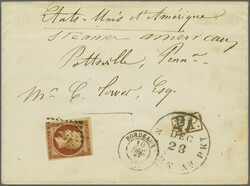 Etats-Unis d'Amérique
Steamer américain
Pottsville, Penn a
Mr C. Lower, Esq.
BORDEAUX
10
DEC
DEC
28
N.
PKT